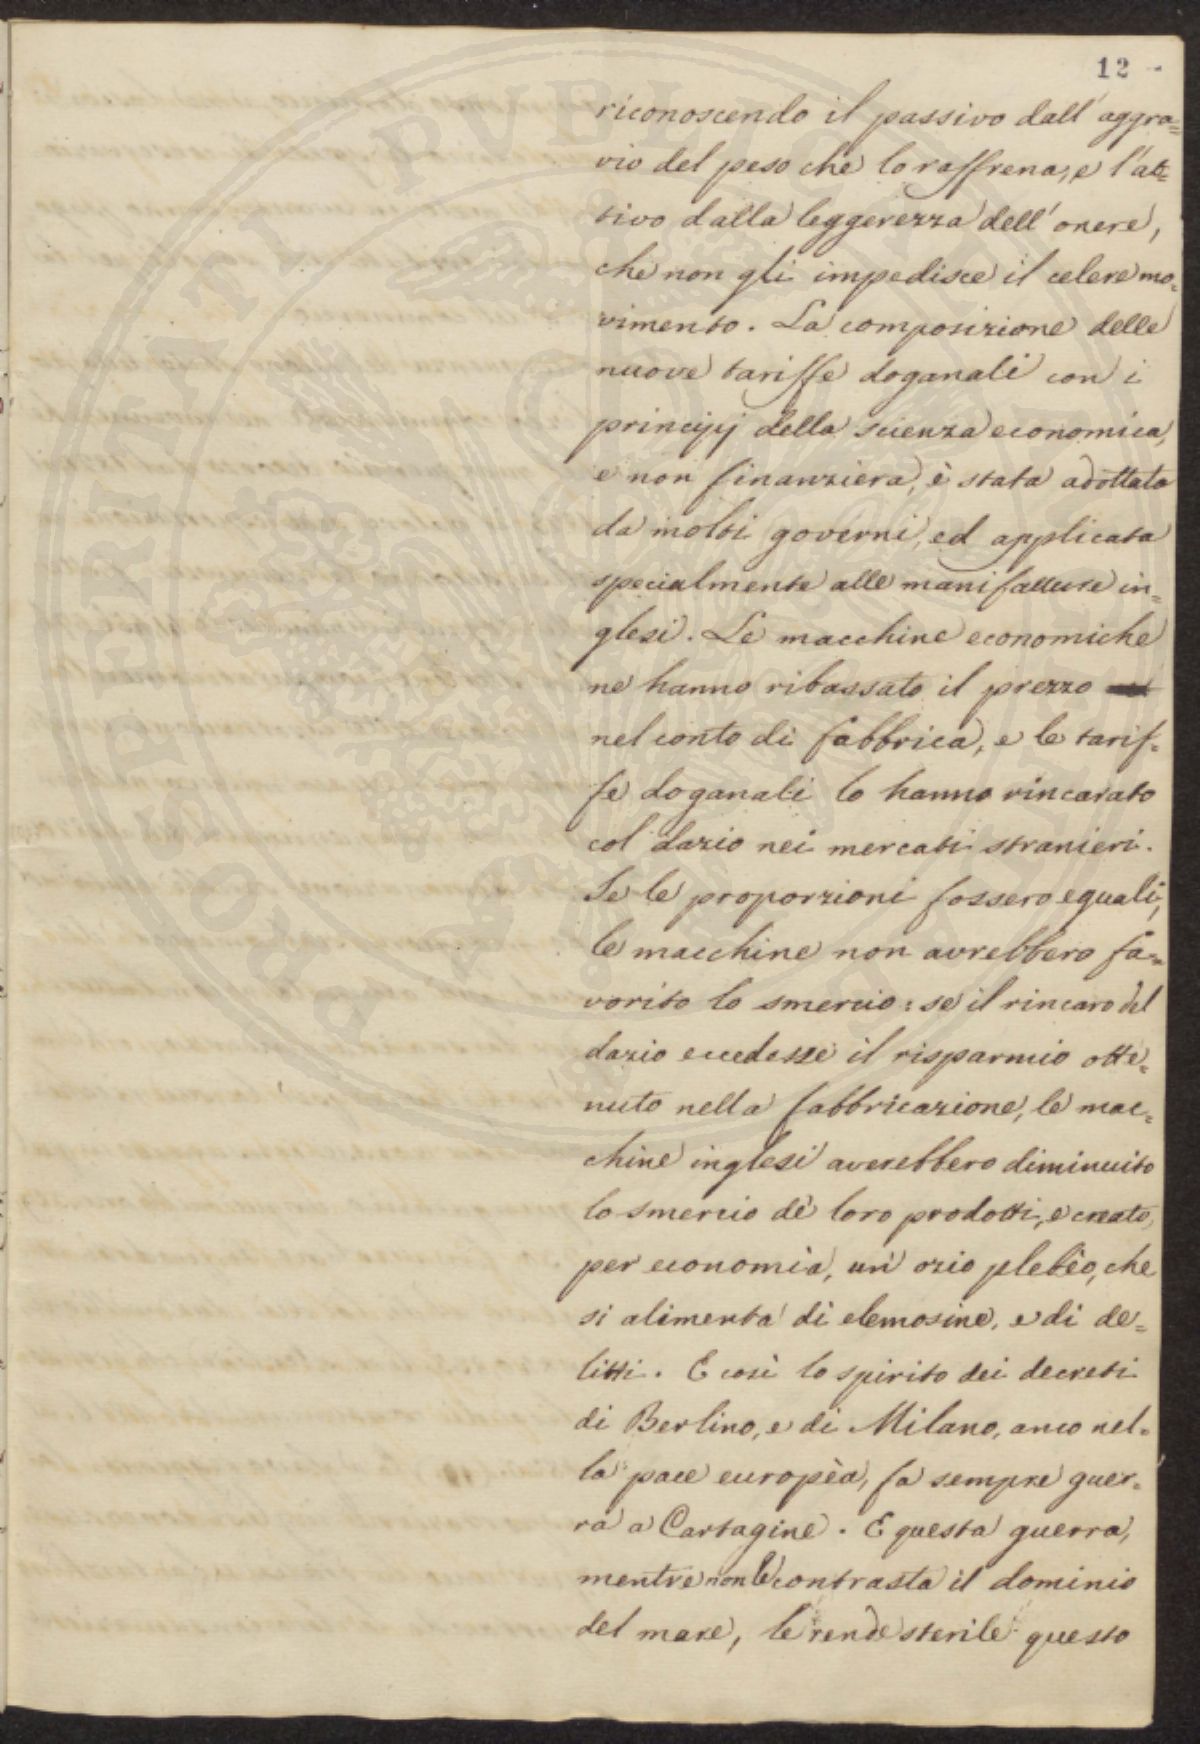 12
riconoscendo il passivo dall'aggra=
vio del peso che lo raffrena, e l'at=
tivo dalla leggerezza dell'onere,
che non gli impedisce il celere mo=
vimento. La composizione delle
nuove tariffe doganali con i
principj della scienza economica,
e non finanziera, è stata adottata
da molti governi, ed applicata
specialmente alle manifatture in=
glesi. Le macchine economiche
ne hanno ribassato il prezzo
nel conto di fabbrica, e le tarif=
fe doganali lo hanno rincarato
col dazio nei mercati stranieri.
Se le proporzioni fossero eguali,
le macchine non avrebbero fa=
vorito lo smercio: se il rincaro del
dazio eccedesse il risparmio otte=
nuto nella fabbricazione, le mac=
chine inglesi averebbero diminuito
lo smercio de' loro prodotti, e creato,
per economia, un' ozio plebèo, che
si alimenta di elemosine, e di de=
litti. E così lo spirito dei decreti
di Berlino, e di Milano, anco nel=
la pace europèa, fa sempre guer=
ra a Cartagine. E questa guerra,
mentre non le contrasta il dominio
del mare, le rende sterile questo
PROSPERITATI PVBLICAE